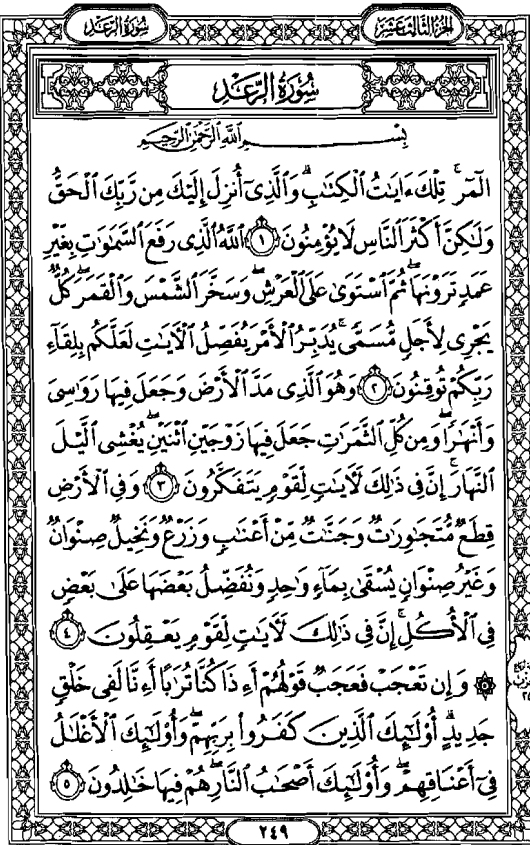 سُورَةُ الرَّعْدِ
الجُزْءُ الثَّالِثَ عَشَرَ
سُورَةُ الرَّعْدِ
بِسْمِ اللَّهِ الرَّحْمَٰنِ الرَّحِيمِ
الٓمٓر ۚ تِلْكَ ءَايَٰتُ الْكِتَٰبِ ۗ وَالَّذِىٓ أُنزِلَ إِلَيْكَ مِن رَّبِّكَ الْحَقُّ
وَلَٰكِنَّ أَكْثَرَ النَّاسِ لَا يُؤْمِنُونَ ١ اللَّهُ الَّذِى رَفَعَ السَّمَٰوَٰتِ بِغَيْرِ
عَمَدٍ تَرَوْنَهَا ۖ ثُمَّ اسْتَوَىٰ عَلَى الْعَرْشِ ۖ وَسَخَّرَ الشَّمْسَ وَالْقَمَرَ ۖ كُلٌّ
يَجْرِى لِأَجَلٍ مُّسَمًّى ۚ يُدَبِّرُ الْأَمْرَ يُفَصِّلُ الْءَايَٰتِ لَعَلَّكُم بِلِقَآءِ
رَبِّكُمْ تُوقِنُونَ ٢ وَهُوَ الَّذِى مَدَّ الْأَرْضَ وَجَعَلَ فِيهَا رَوَٰسِىَ
وَأَنْهَٰرًا ۖ وَمِن كُلِّ الثَّمَرَٰتِ جَعَلَ فِيهَا زَوْجَيْنِ اثْنَيْنِ ۖ يُغْشِى الَّيْلَ
النَّهَارَ ۚ إِنَّ فِى ذَٰلِكَ لَءَايَٰتٍ لِّقَوْمٍ يَتَفَكَّرُونَ ٣ وَفِى الْأَرْضِ
قِطَعٌ مُّتَجَٰوِرَٰتٌ وَجَنَّٰتٌ مِّنْ أَعْنَٰبٍ وَزَرْعٌ وَنَخِيلٌ صِنْوَانٌ
وَغَيْرُ صِنْوَانٍ يُسْقَىٰ بِمَآءٍ وَٰحِدٍ وَنُفَضِّلُ بَعْضَهَا عَلَىٰ بَعْضٍ
فِى الْأُكُلِ ۚ إِنَّ فِى ذَٰلِكَ لَءَايَٰتٍ لِّقَوْمٍ يَعْقِلُونَ ٤
۞ وَإِن تَعْجَبْ فَعَجَبٌ قَوْلُهُمْ أَءِذَا كُنَّا تُرَٰبًا أَءِنَّا لَفِى خَلْقٍ
جَدِيدٍ ۗ أُو۟لَٰٓئِكَ الَّذِينَ كَفَرُوا۟ بِرَبِّهِمْ ۖ وَأُو۟لَٰٓئِكَ الْأَغْلَٰلُ
فِىٓ أَعْنَاقِهِمْ ۖ وَأُو۟لَٰٓئِكَ أَصْحَٰبُ النَّارِ ۖ هُمْ فِيهَا خَٰلِدُونَ ٥
٢٤٩